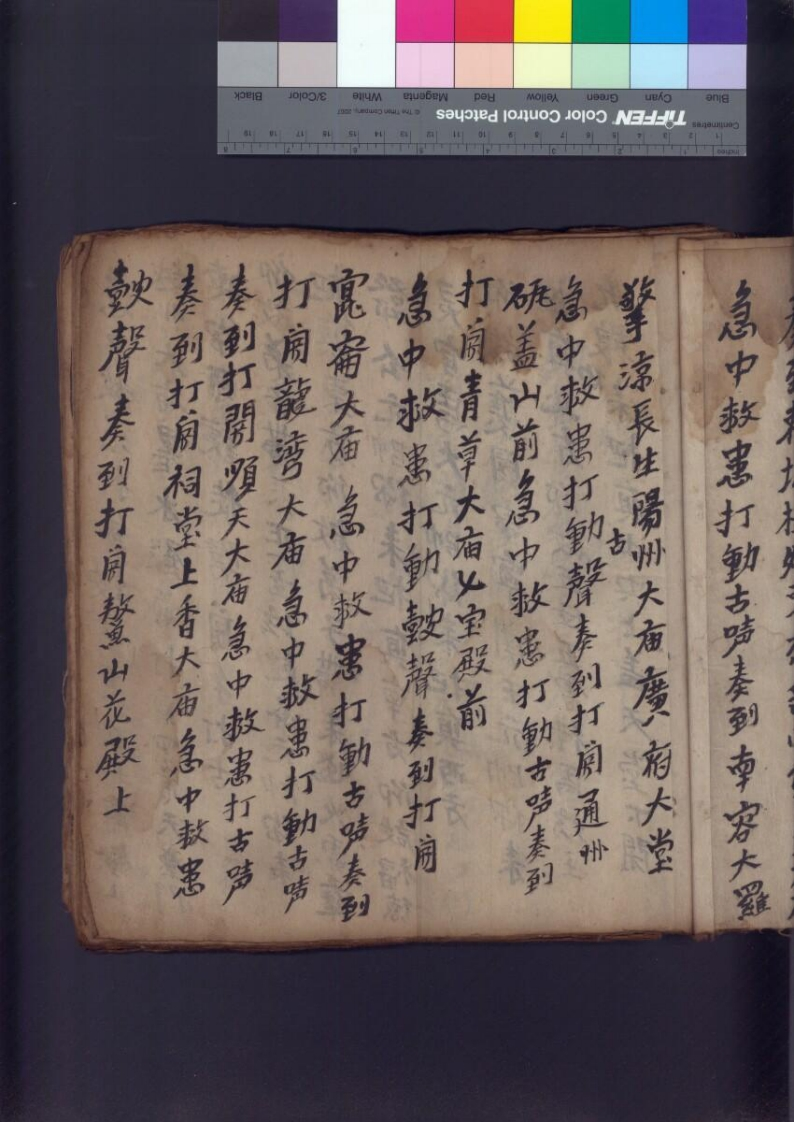 急中救患打動古声奏到南容大羅
擎涼長生陽州大庙廣府大堂
急中救患打動古聲奏到打闹通州
硪盖山前急中救患打動古声奏到
打闹青草大庙七宝殿前
急中救患打動鼓聲奏到打闹
崙大庙急中救患打動古声奏到
打闹龍湾大庙急中救患打動古声
奏到打開順天大庙急中救患打古声
奏到打闹祠堂上香大庙急中救患
鼓聲奏到打闹鰲山花殿上
Blue
Cyan
Green
Yellow
Red
Magenta
White
3/Color
Black
TIFFEN Color Control Patches
© The Tiffen Company, 2007
Centimetres
Inches